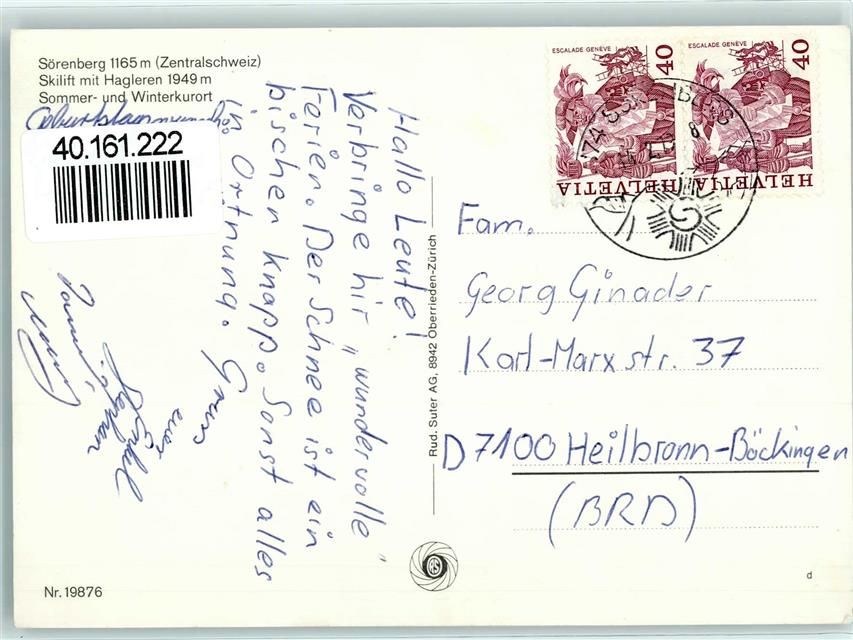 Sörenberg 1165 m (Zentralschweiz)
Skilift mit Hagleren 1949 m
Sommer- und Winterkurort
40.161.222
Hallo Leute!
Verbringe hir „wundervolle"
Ferien. Der Schnee ist ein
bischen knapp. Sonst alles
in Ortnung. Gruss
euer
Nr. 19876
Rud. Suter AG, 8942 Oberrieden-Zürich
ESCALADE GENÈVE
40
HELVETIA
ESCALADE GENÈVE
40
HELVETIA
Fam.
Georg Ginader
Karl-Marxstr. 37
D 7100 Heilbronn-Böckingen
(BRD)
d